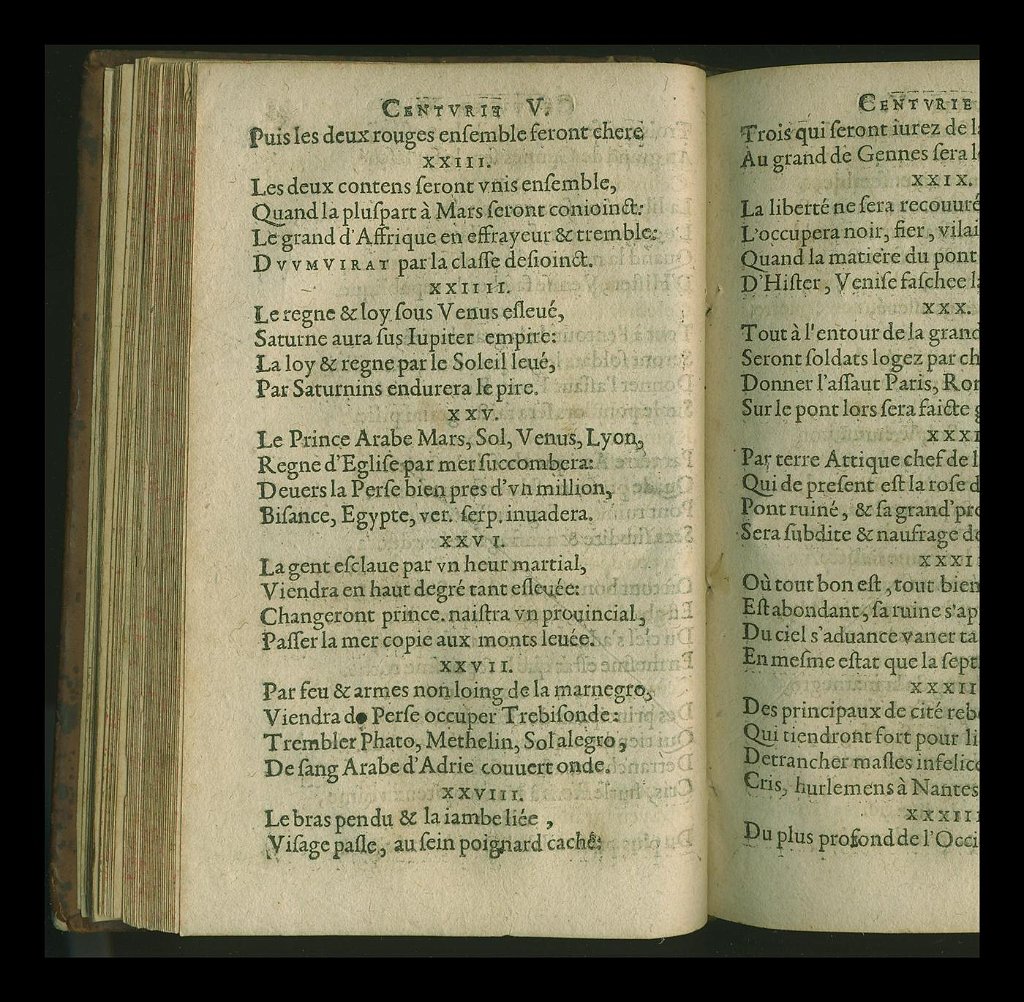 CENTVRIE V.
Puis les deux rouges enſemble feront chere
XXIII.
Les deux contens ſeront vnis enſemble,
Quand la pluſpart à Mars ſeront conioinct:
Le grand d'Affrique en effrayeur & tremble:
DVVMVIRAT par la claſſe deſioinct.
XXIIII.
Le regne & loy ſous Venus eſleué,
Saturne aura ſus Iupiter empire:
La loy & regne par le Soleil leué,
Par Saturnins endurera le pire.
XXV.
Le Prince Arabe Mars, Sol, Venus, Lyon,
Regne d'Egliſe par mer ſuccombera:
Deuers la Perſe bien pres d'vn million,
Biſance, Egypte, ver. ſerp. inuadera.
XXVI.
La gent eſclaue par vn heur martial,
Viendra en haut degré tant eſleuée:
Changeront prince. naiſtra vn prouincial,
Paſſer la mer copie aux monts leuée.
XXVII.
Par feu & armes non loing de la marnegro,
Viendra de Perſe occuper Trebiſonde:
Trembler Phato, Methelin, Sol alegro,
De ſang Arabe d'Adrie couuert onde.
XXVIII.
Le bras pendu & la iambe liée,
Viſage paſle, au ſein poignard caché:
CENTVRIE
Trois qui ſeront iurez de
Au grand de Gennes ſera
XXIX.
La liberté ne ſera recouuré
L'occupera noir, fier, vilai
Quand la matiere du pont
D'Hiſter, Veniſe faſchee
XXX.
Tout à l'entour de la grand
Seront ſoldats logez par ch
Donner l'aſſaut Paris, Ro
Sur le pont lors ſera faicte
XXXI
Par terre Attique chef de
Qui de preſent eſt la roſe d
Pont ruiné, & ſa grand' pre
Sera ſubdite & naufrage de
XXXII
Où tout bon eſt, tout bien
Eſt abondant, ſa ruine s'ap
Du ciel s'aduance vaner ta
En meſme eſtat que la ſept
XXXII
Des principaux de cité reb
Qui tiendront fort pour li
Detrancher maſles infelice
Cris, hurlemens à Nantes
XXXIII
Du plus profond de l'Occi